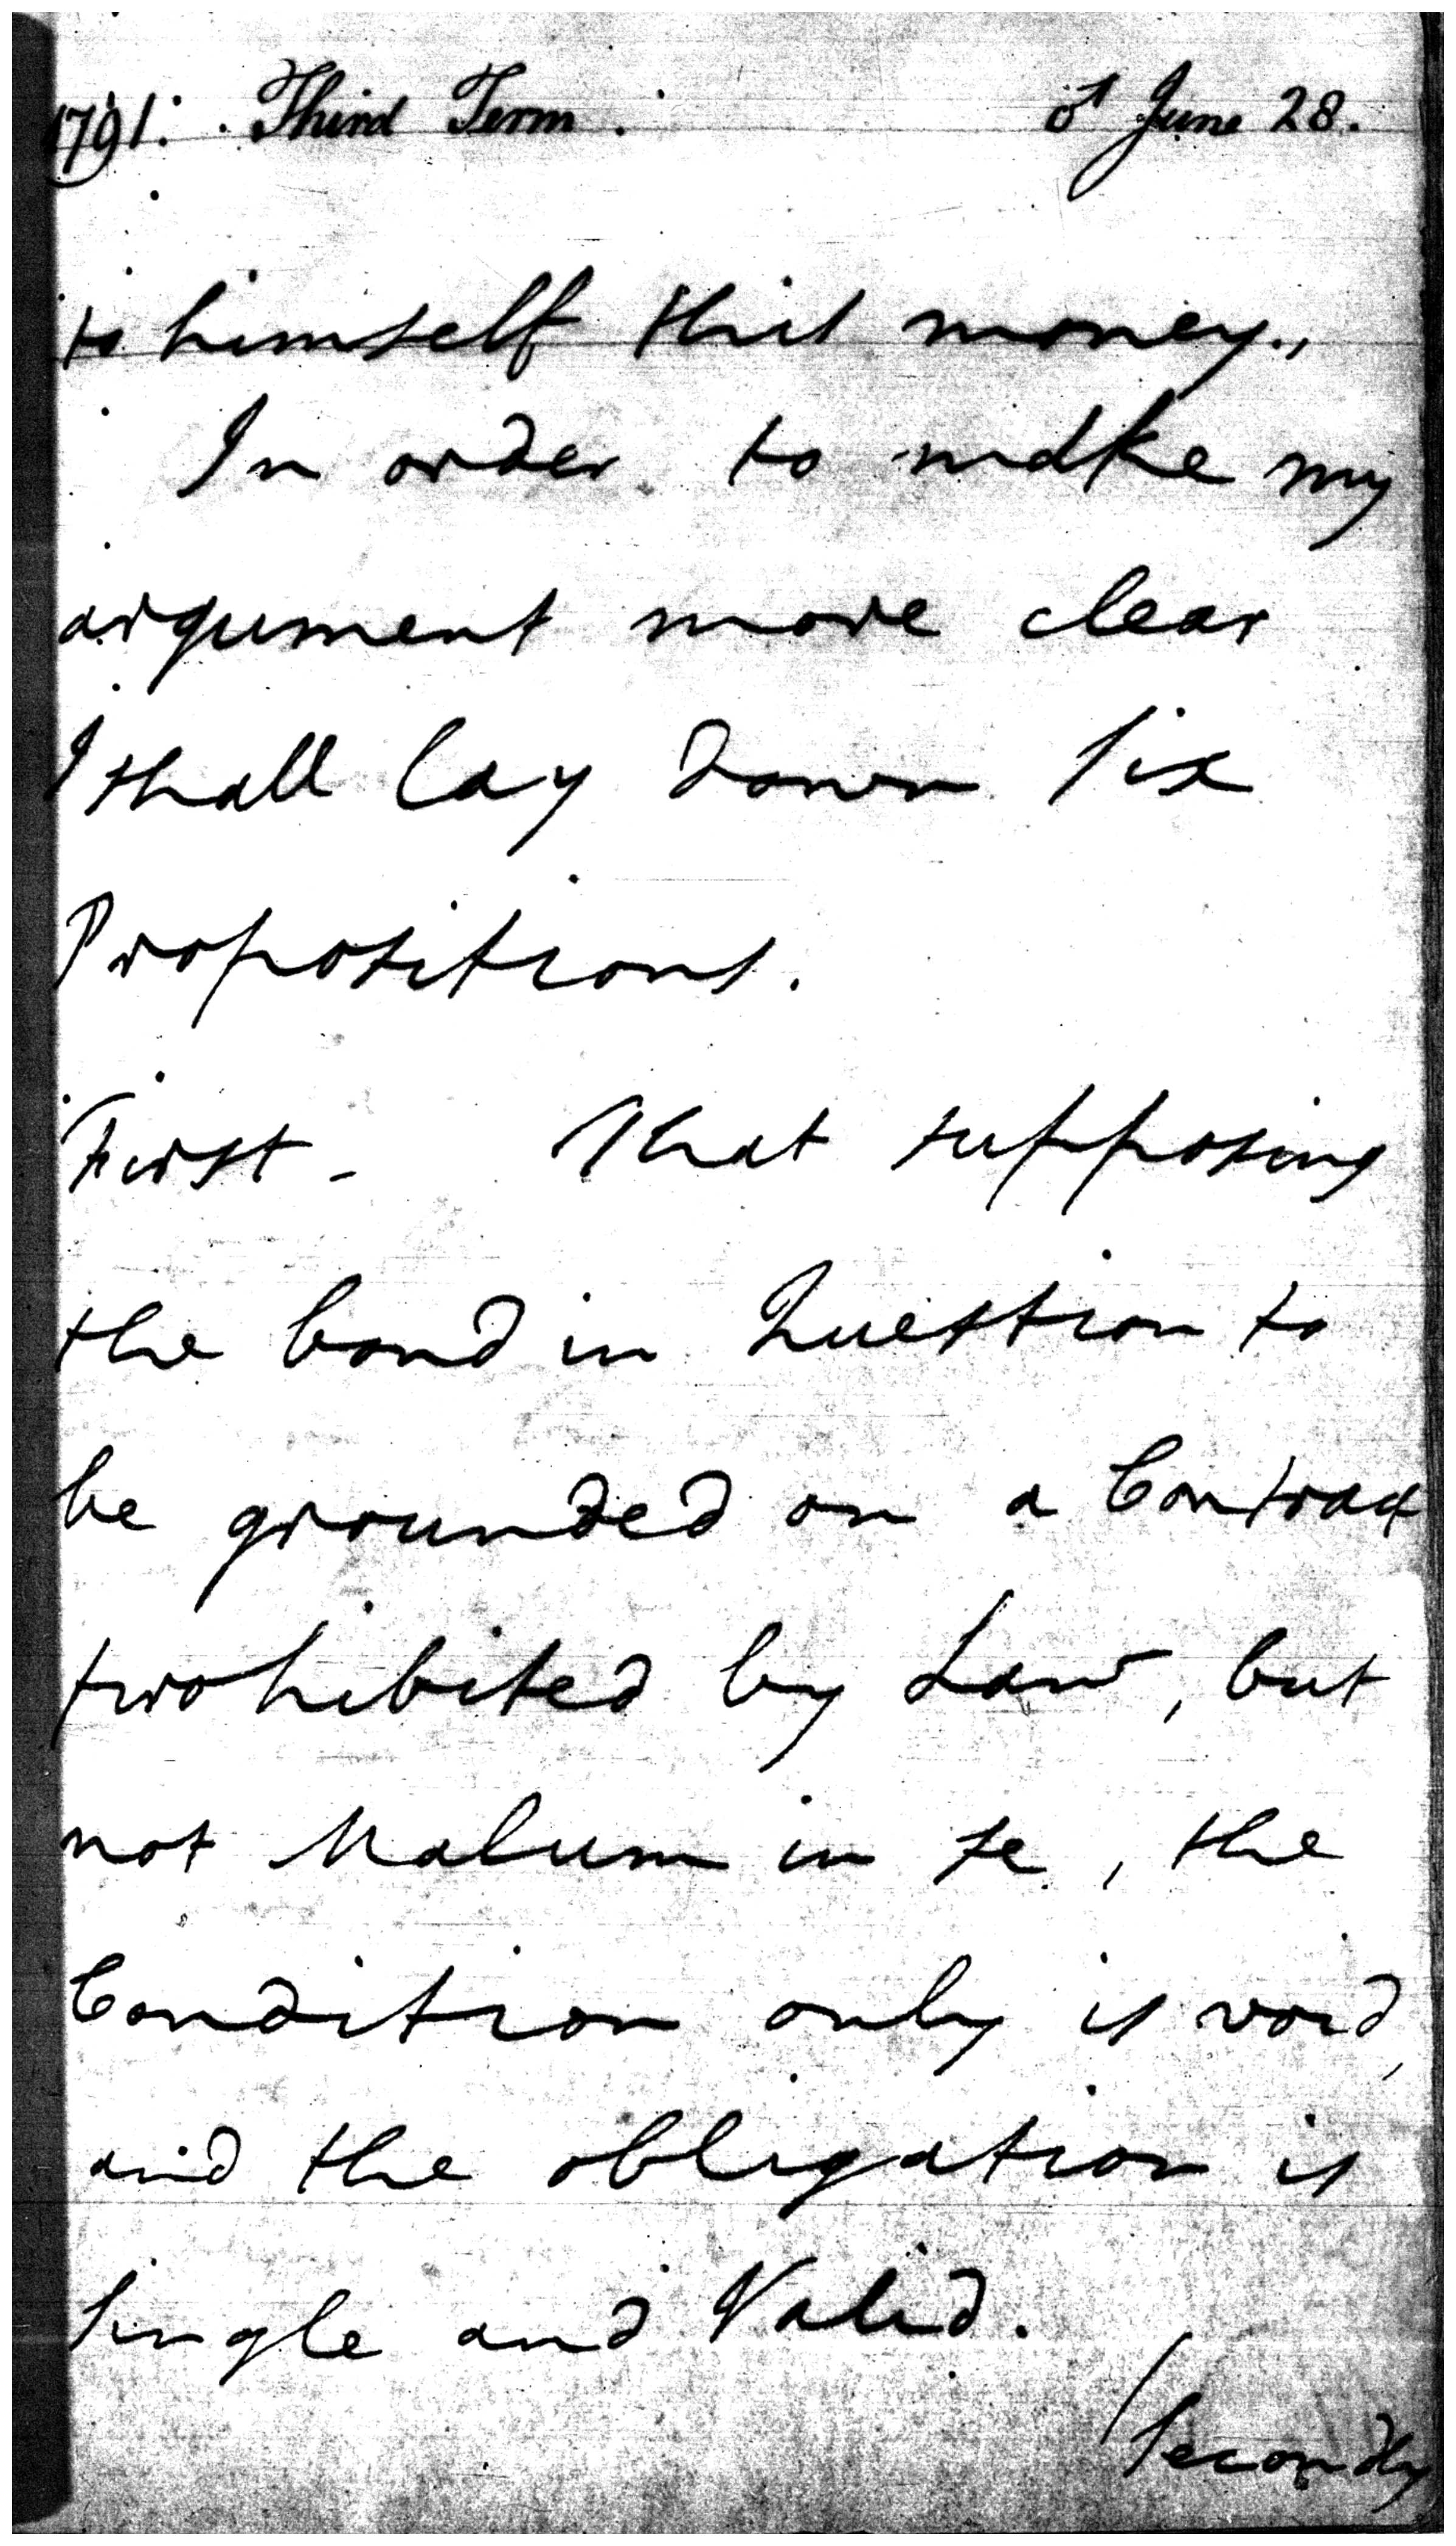 1791. Third Term. of June 28.
to himself this money.,
In order to make my
argument more clear
I shall lay down six
Propositions.
First - That supposing
the bond in Question to
be grounded on a Contract
prohibited by Law, but
not Malum in se, the
Condition only is void,
and the obligation is
single and Valid.
Secondly